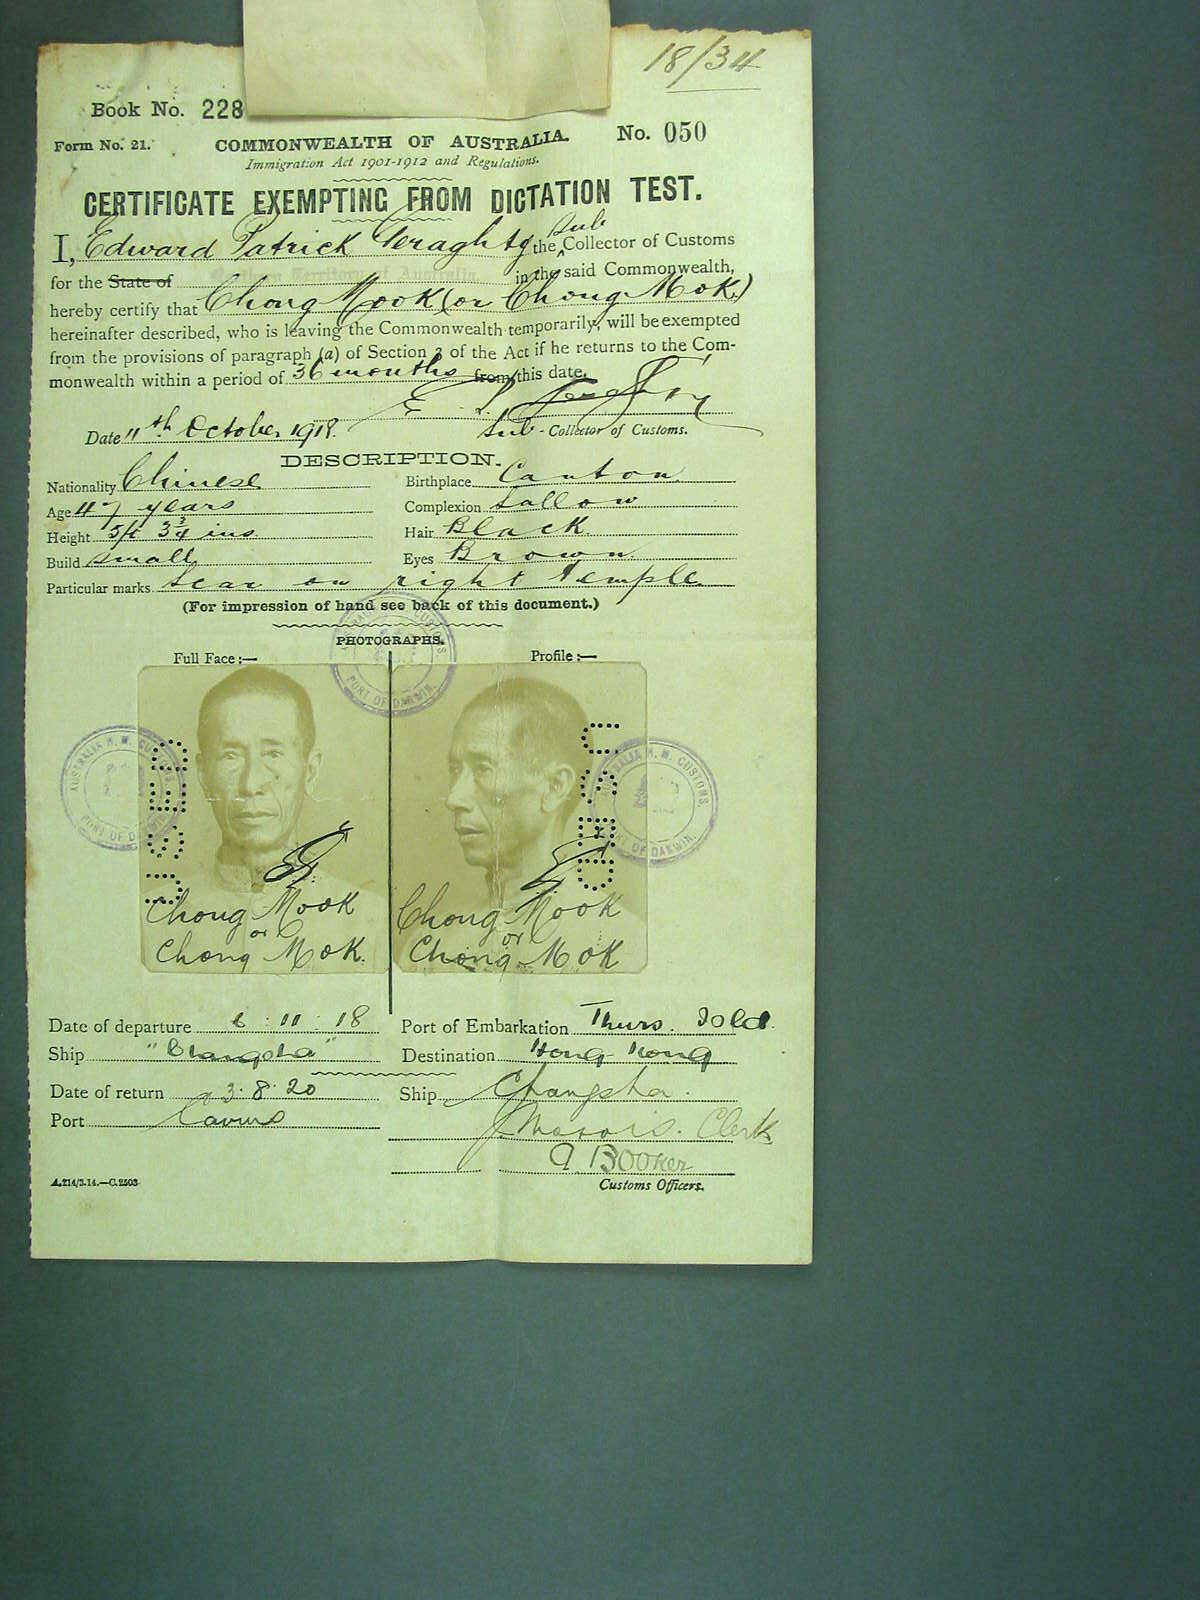 18/34
Book No. 228
Form No. 21. COMMONWEALTH OF AUSTRALIA. No. 050
Immigration Act 1901-1912 and Regulations.
CERTIFICATE EXEMPTING FROM DICTATION TEST.
I, Edward Patrick Geraghty the Sub Collector of Customs
for the State of Northern Territory of Australia, in the said Commonwealth,
hereby certify that Chong Mook (or Chong Mok)
hereinafter described, who is leaving the Commonwealth temporarily, will be exempted
from the provisions of paragraph (a) of Section 3 of the Act if he returns to the Com-
monwealth within a period of 36 months from this date.
Date 11th October 1918. Sub - Collector of Customs.
DESCRIPTION.
Nationality Chinese Birthplace Canton
Age 47 years Complexion Sallow
Height 5ft 3 3/4 ins Hair Black
Build small Eyes Brown
Particular marks Scar on right temple
(For impression of hand see back of this document.)
PHOTOGRAPHS.
Full Face:— Profile:—
AUSTRALIA H. M. CUSTOMS PORT OF DARWIN.
USED
USED
Chong Mook Chong Mook
or or
Chong Mok. Chong Mok
Date of departure 6 : 11 : 18 Port of Embarkation Thurs. Isld.
Ship "Changsha" Destination Hong Kong
Date of return 3.8.20 Ship Changsha.
Port Cairns
Clerk
A. Booker
A.214/3.14.—C.2503. Customs Officers.